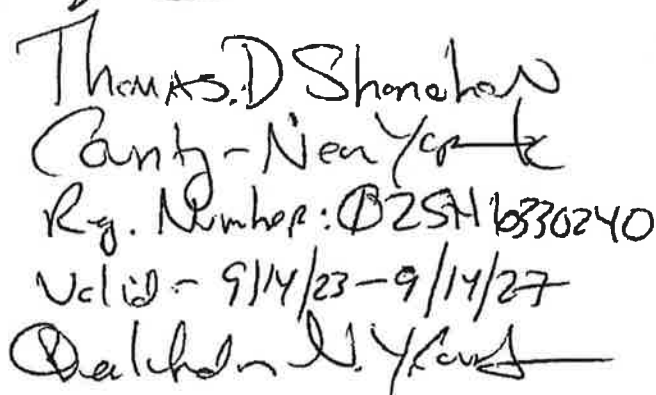 Thomas.D Shanahan
County - New York
Reg. Number: 02SH6330240
Valid - 9/14/23 - 9/14/27
N.Y. County